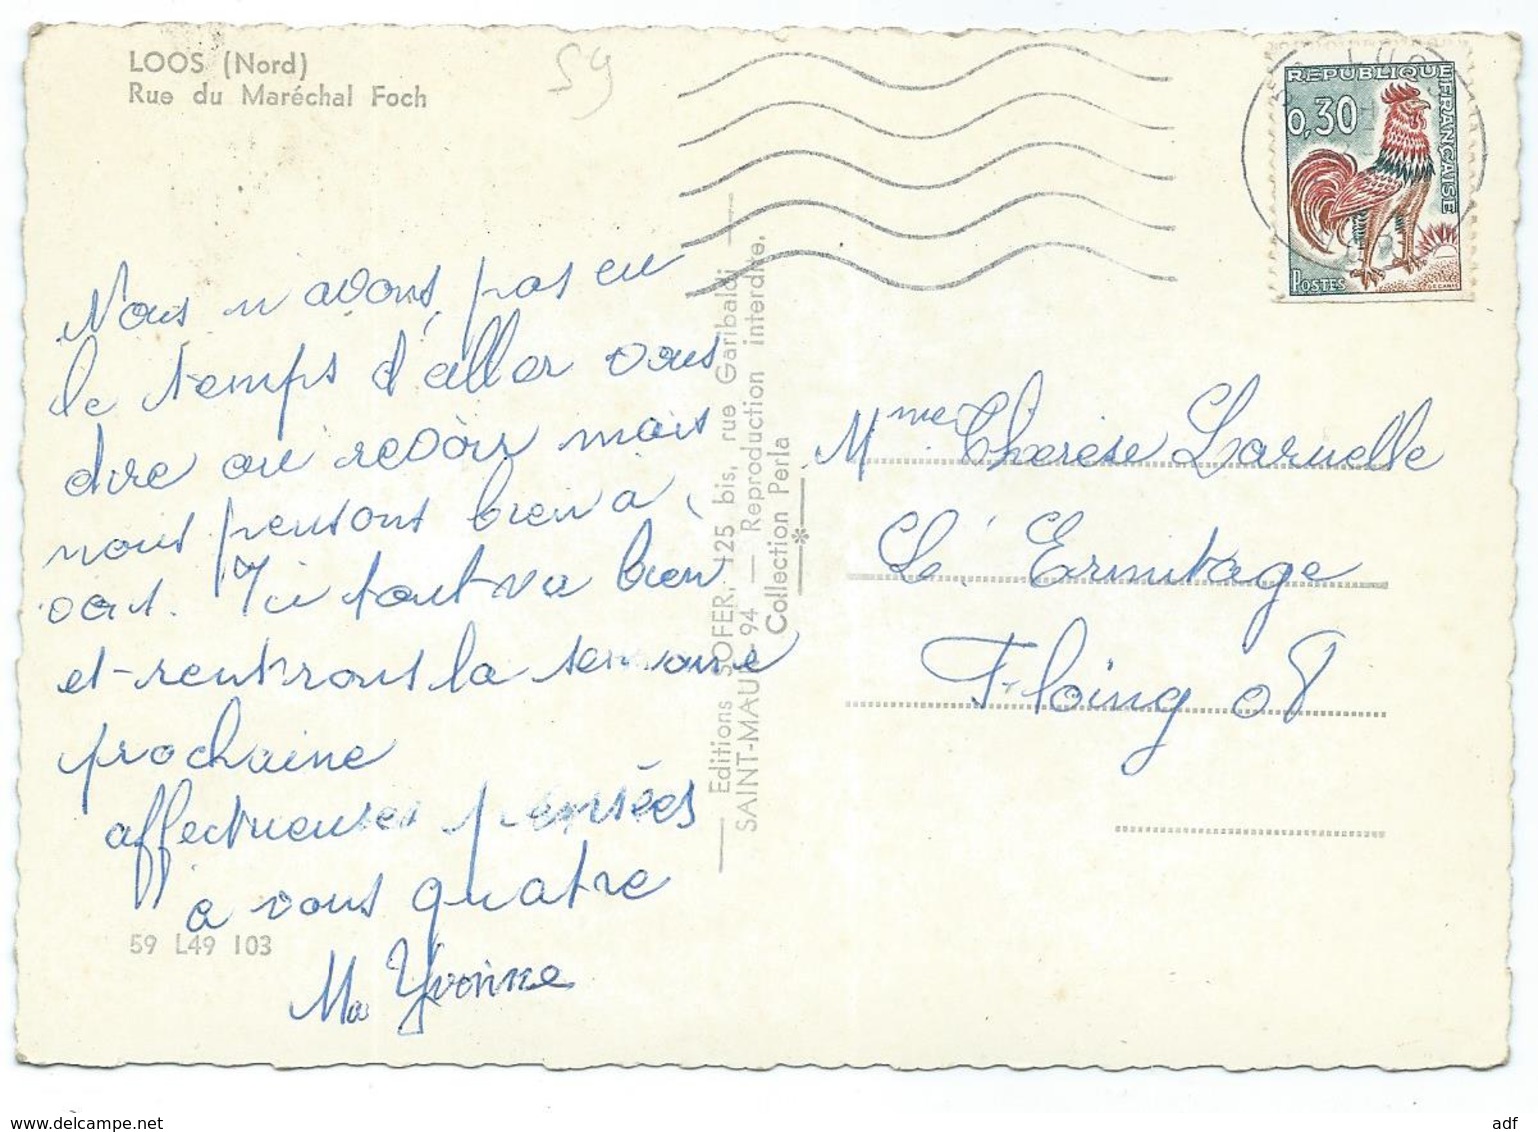 LOOS (Nord)
Rue du Maréchal Foch
59
REPUBLIQUE FRANÇAISE
0,30
POSTES
DECARIS
Nous n'avons pas eu
le temps d'aller vous
dire au revoir mais
nous pensons bien a
vous. Ici tout va bien
et rentrons la semaine
prochaine
affectueuses pensées
a vous quatre
Yvonne
59 L49 103
Editions SOFER, 125 bis, rue Garibaldi
SAINT-MAUR 94 — Reproduction interdite.
Collection Perla
Mme Thérèse Laruelle
L'Ermitage
Floing 08
www.delcampe.net
adf